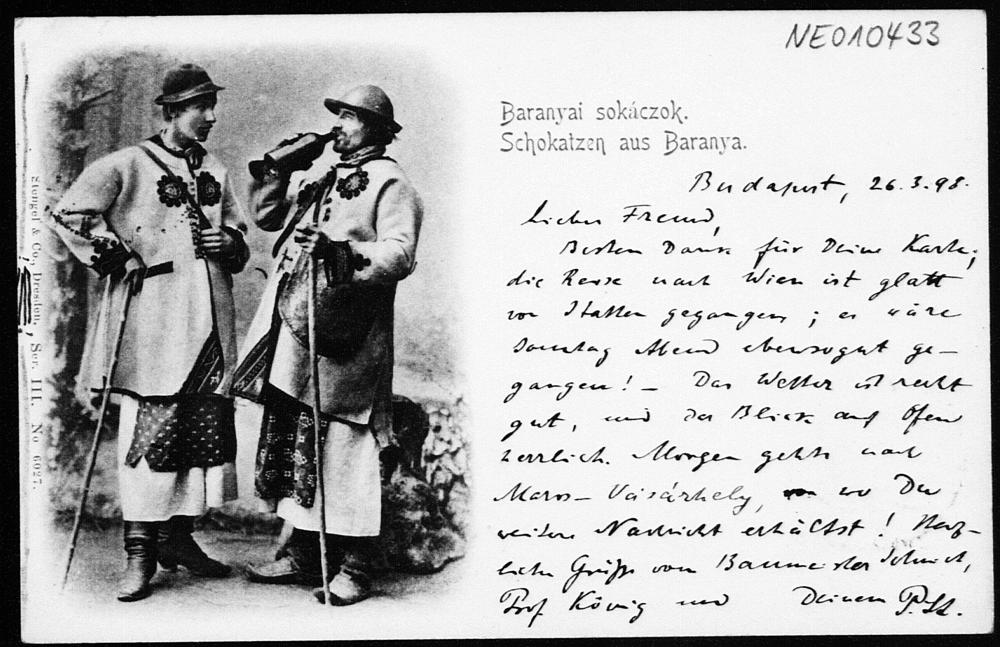 NEO10433
Baranyai sokáczok.
Schokatzen aus Baranya.
Budapest, 26.3.98.
Lieber Freund,
Besten Dank für Deine Karte;
die Reise nach Wien ist glatt
von Statten gegangen; es wäre
Sonntag Abend ebensogut ge-
gangen! - Das Wetter ist recht
gut, und der Blick auf Ofen
herrlich. Morgen gehts nach
Maros-Vásárhely, wo Du
weitere Nachricht erhältst! Herz-
liche Grüße von Baumeister Schmidt,
Prof König und Deinem P. St.
Stengel & Co., Dresden. Ser. III. No 6027.